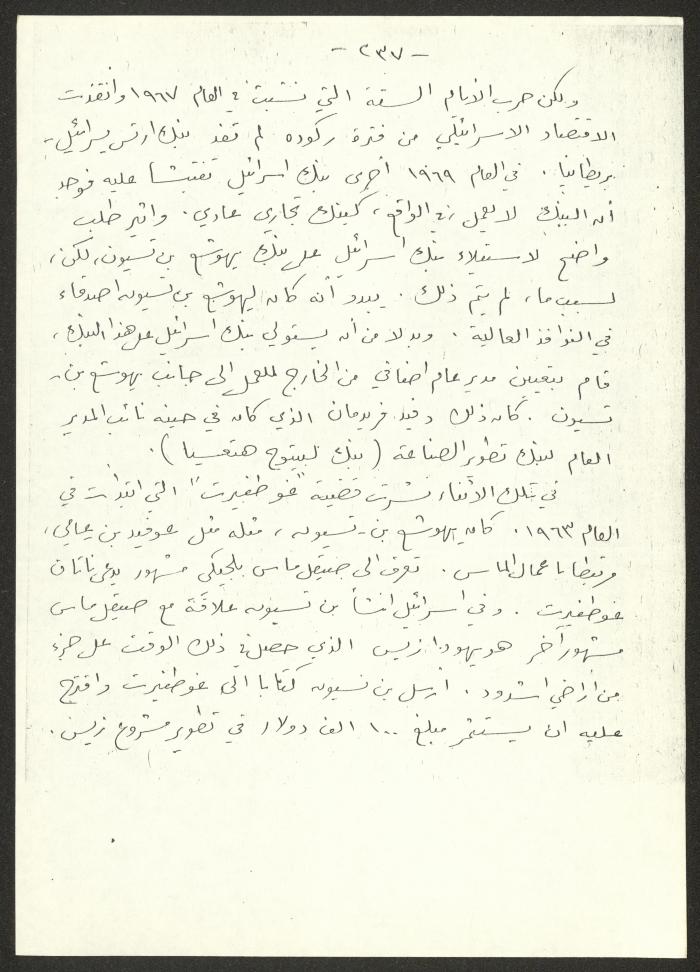 - ٢٣٧ -
ولكن حرب الايام الستة التي نشبت في العام ١٩٦٧ وانقذت
الاقتصاد الاسرائيلي من فترة ركوده لم تفد بنك ارتس يسرائيل -
بريطانيا . في العام ١٩٦٩ أجرى بنك اسرائيل تفتيشا عليه فوجد
أن البنك لا يعمل ، في الواقع ، كبنك تجاري عادي . واثير طلب
واضح لاستيلاء بنك اسرائيل على بنك يهوشع بن تسيون ، لكن ،
لسبب ما ، لم يتم ذلك . يبدو أنه كان ليهوشع بن تسيون اصدقاء
في النوافذ العالية . وبدلا من أن يستولي بنك اسرائيل على هذا البنك ،
قام بتعيين مدير عام اضافي من الخارج للعمل الى جانب يهوشع بن -
تسيون . كان ذلك دفيد فريدمان الذي كان في حينه نائب المدير
العام لبنك تطوير الصناعة ( بنك لبيتوح هتعسيا ) .
في تلك الأثناء نشرت قضية "غوطفيرت" التي ابتدأت في
العام ١٩٦٣ . كان يهوشع بن - تسيون ، مثله مثل عوفيد بن عامي ،
مرتبطا باعمال الماس . تعرف الى صيقل ماس بلجيكي مشهور يدعى ناتان
غوطفيرت . وفي اسرائيل انشأ بن تسيون علاقة مع صيقل ماس
مشهور آخر هو يهودا زيس الذي حصل في ذلك الوقت على جزء
من اراضي اشدود . أرسل بن تسيون كتابا الى غوطفيرت واقترح
عليه ان يستثمر مبلغ ١٠٠ الف دولار في تطوير مشروع زيس .